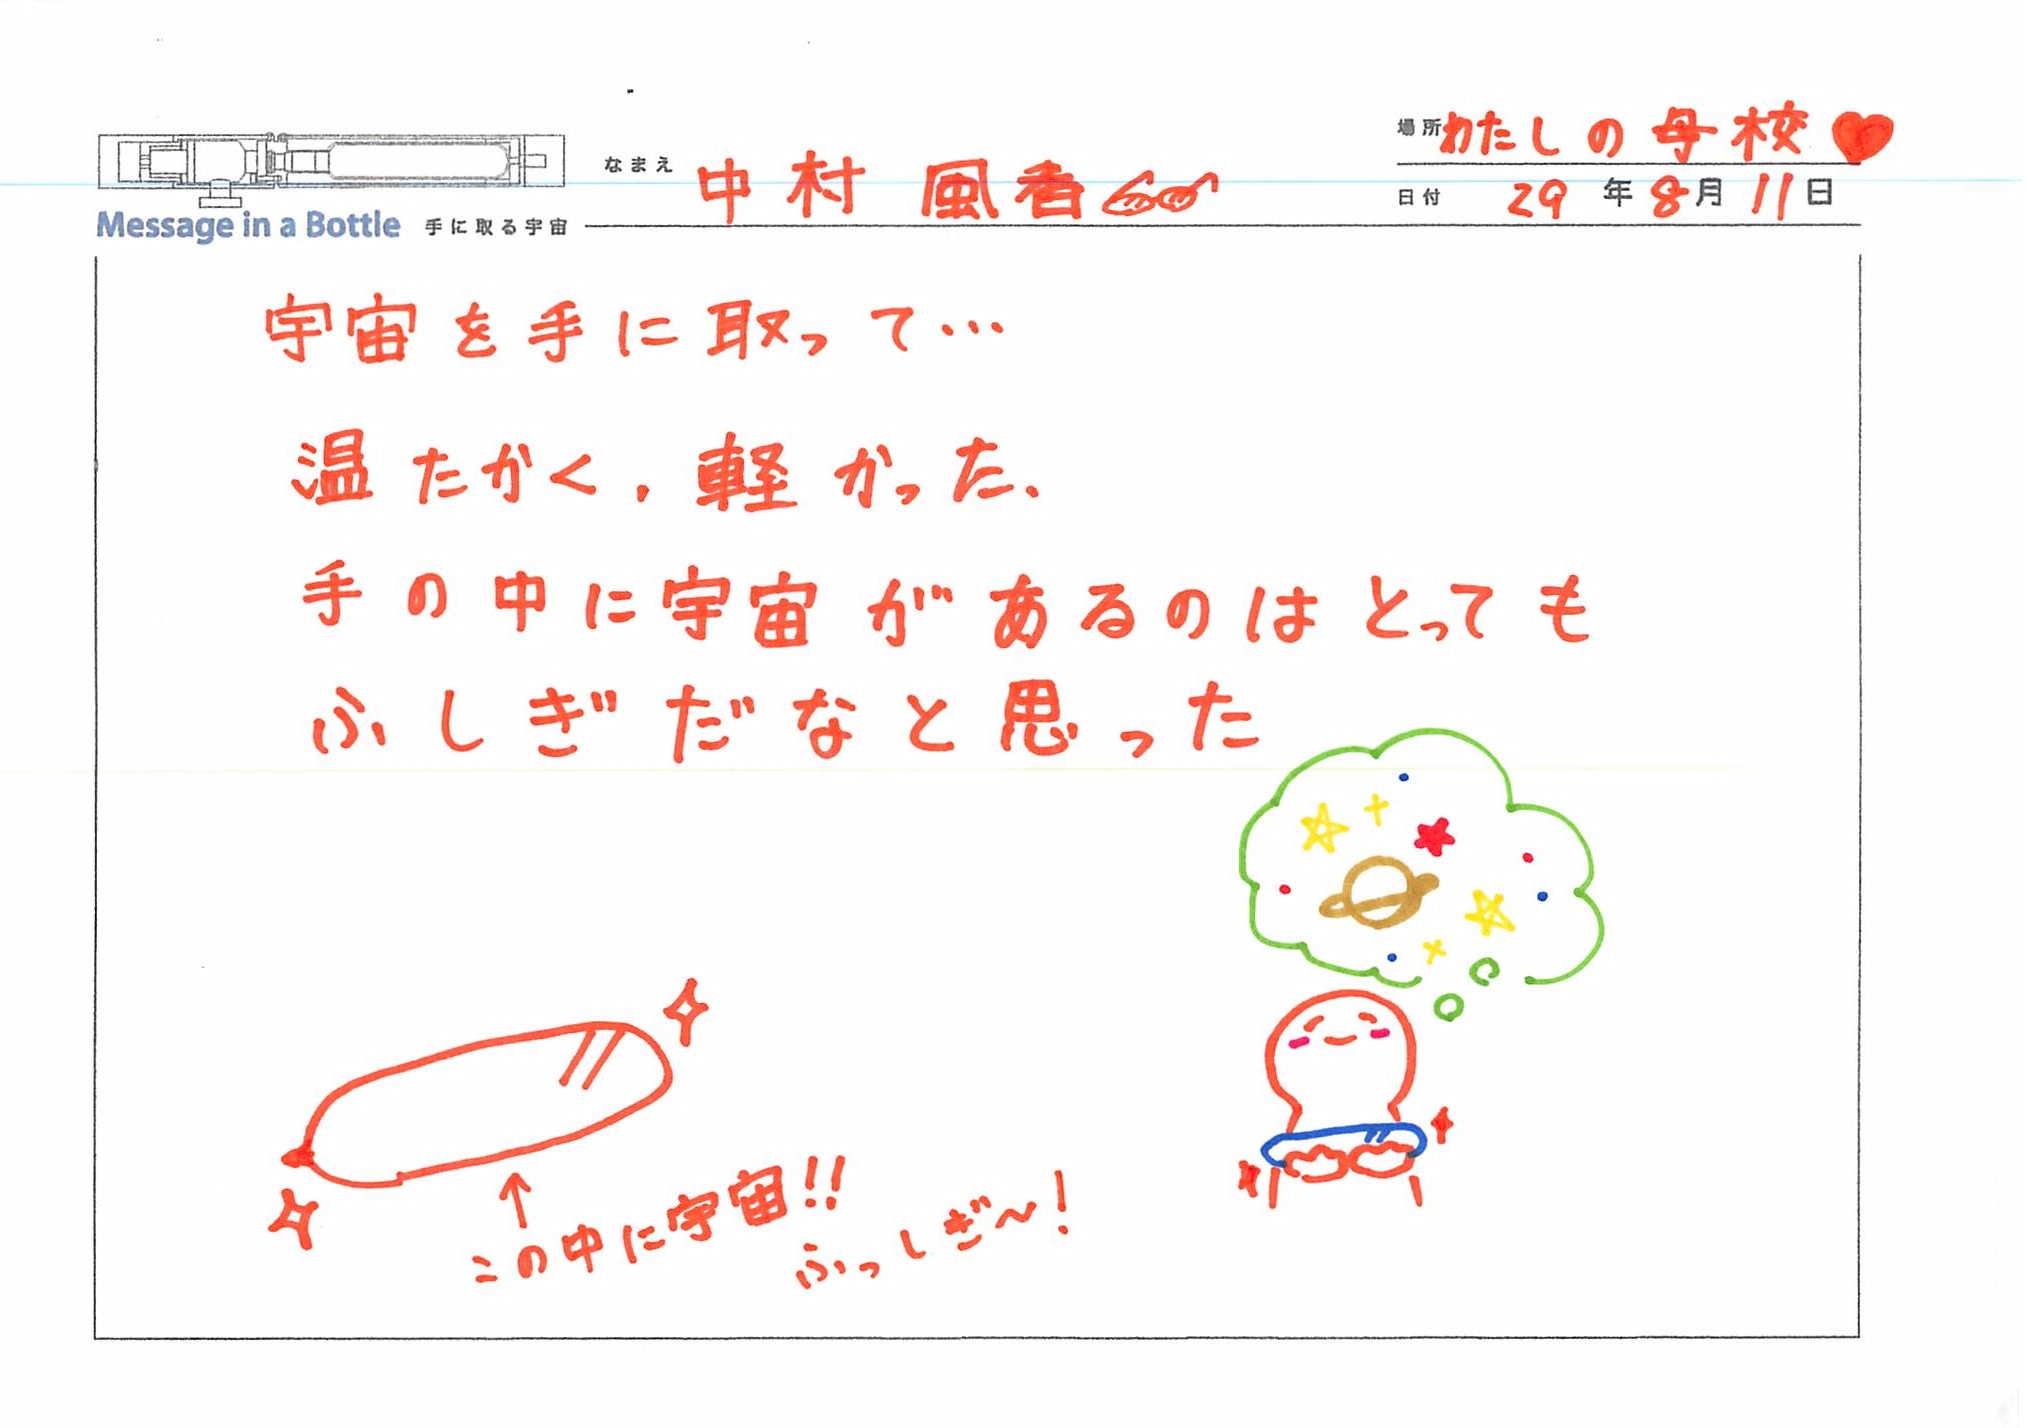 場所 わたしの母校
なまえ 中村 風香
日付 29年8月11日
Message in a Bottle 手に取る宇宙
宇宙を手に取って…
温たかく、軽かった、
手の中に宇宙があるのはとっても
ふしぎだなと思った
この中に宇宙!!
ふっしぎ〜!